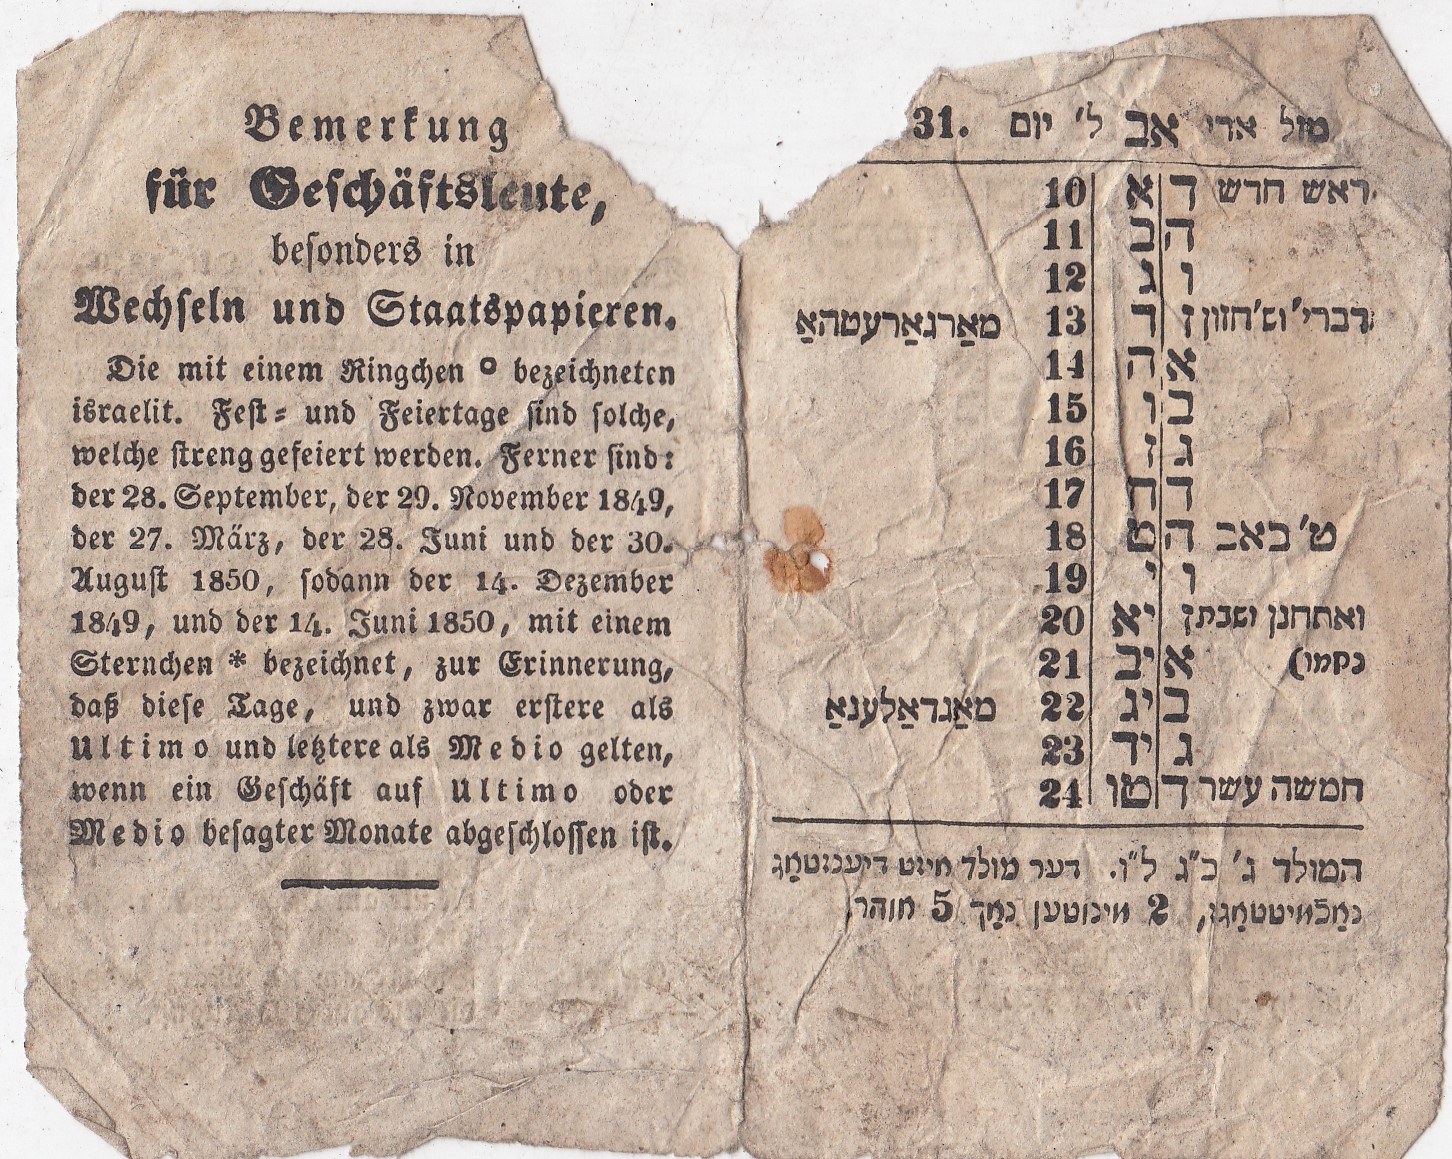 Bemerkung
für Geschäftsleute,
besonders in
Wechseln und Staatspapieren.
Die mit einem Ringchen ° bezeichneten
israelit. Fest- und Feiertage sind solche,
welche streng gefeiert werden. Ferner sind:
der 28. September, der 29. November 1849,
der 27. März, der 28. Juni und der 30.
August 1850, sodann der 14. Dezember
1849, und der 14. Juni 1850, mit einem
Sternchen * bezeichnet, zur Erinnerung,
daß diese Tage, und zwar erstere als
Ultimo und letztere als Medio gelten,
wenn ein Geschäft auf Ultimo oder
Medio besagter Monate abgeschlossen ist.
מזל ארי אב ל' יום 31.
ראש חדש ד א 10
ה ב 11
ו ג 12
דברי' ש'חזון ז ד 13 מאַרגאַרעטהאַ
א ה 14
ב ו 15
ג ז 16
ד ח 17
ט' באב ה ט 18
ו י 19
ואתחנן ושבת ז יא 20
נקמו) א יב 21
ב יג 22 מאַגדאַלענאַ
ג יד 23
חמשה עשר ד טו 24
המולד ג' כ"ג ל"ו. דער מולד איזט דיענזטאָג
נאָכמיטטאָגז, 2 מינוטען נאָך 5 אוהר